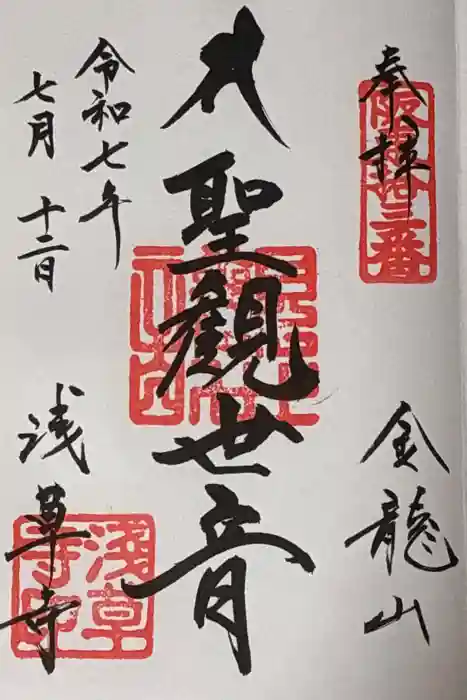 奉拝
坂東拾三番
金龍山
聖観世音
令和七年
七月十二日
浅草寺
浅草寺印